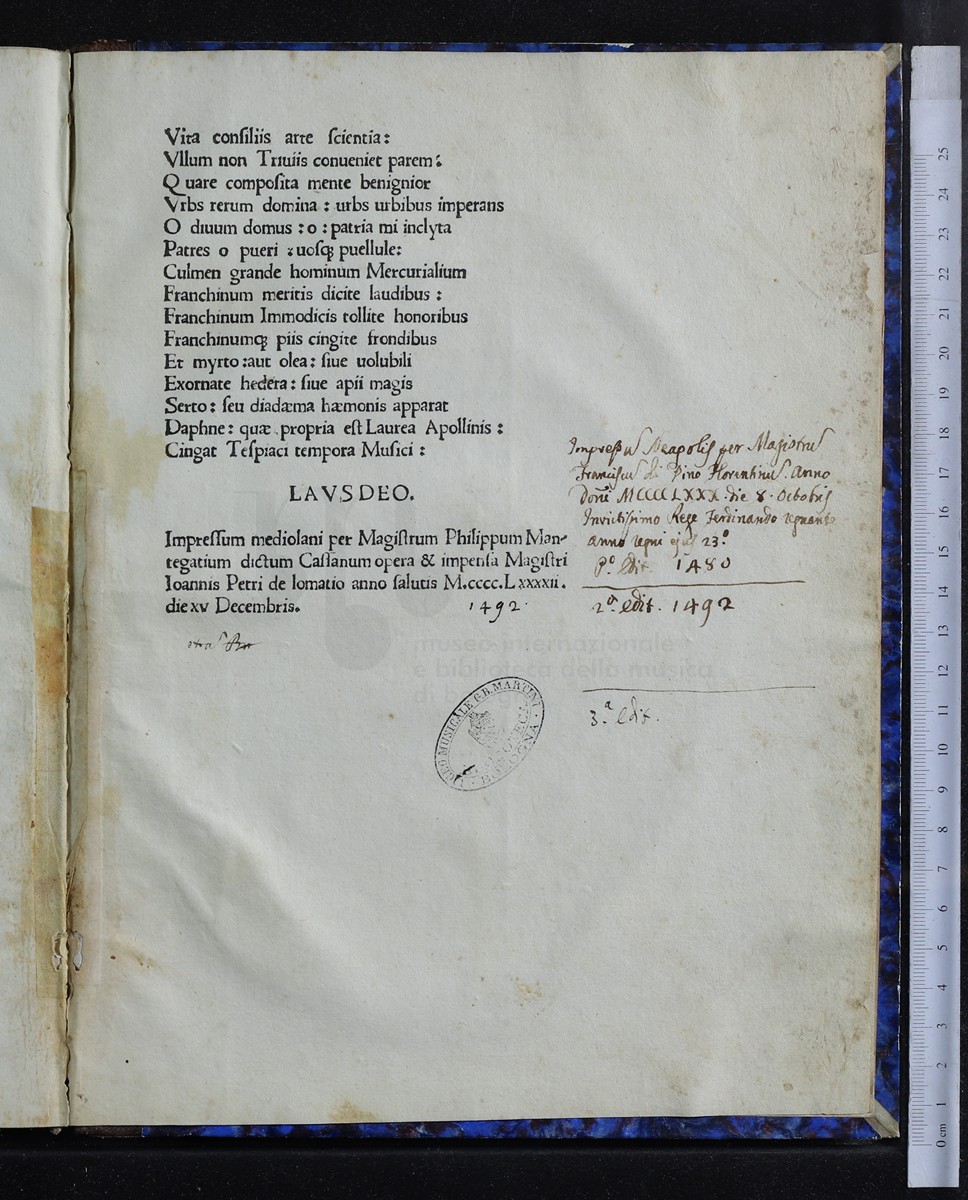 Vita conſiliis arte ſcientia:
Vllum non Triuiis conueniet parem:
Quare compoſita mente benignior
Vrbs rerum domina : urbs urbibus imperans
O diuum domus : o : patria mi inclyta
Patres o pueri : uoſqꝫ puellule:
Culmen grande hominum Mercurialium
Franchinum meritis dicite laudibus :
Franchinum Immodicis tollite honoribus
Franchinumqꝫ piis cingite frondibus
Et myrto:aut olea: ſiue uolubili
Exornate hedera: ſiue apii magis
Serto: ſeu diadæma hæmonis apparat
Daphne: quæ propria eſt Laurea Apollinis :
Cingat Teſpiaci tempora Muſici :
LAVS DEO.
Impreſſum mediolani per Magiſtrum Philippum Man-
tegatium dictum Caſſanum opera & impenſa Magiſtri
Ioannis Petri de lomatio anno ſalutis M.cccc.Lxxxxii.
die xv Decembris.
1492.
Impressu Neapolis per Magistru
Franciscu di Dino Florentinu. Anno
Domi MCCCCLXXX. die 8. Octobris
Invictissimo Rege Ferdinando regnante
anno regni ejus 23.º
Pª edit. 1480
2ª edit. 1492
3.ª edit.
LICEO MUSICALE G.B. MARTINI
BIBLIOTECA
BOLOGNA
museo internazionale
e biblioteca della musica
di bologna
25
24
23
22
21
20
19
18
17
16
15
14
13
12
11
10
9
8
7
6
5
4
3
2
1
0 cm